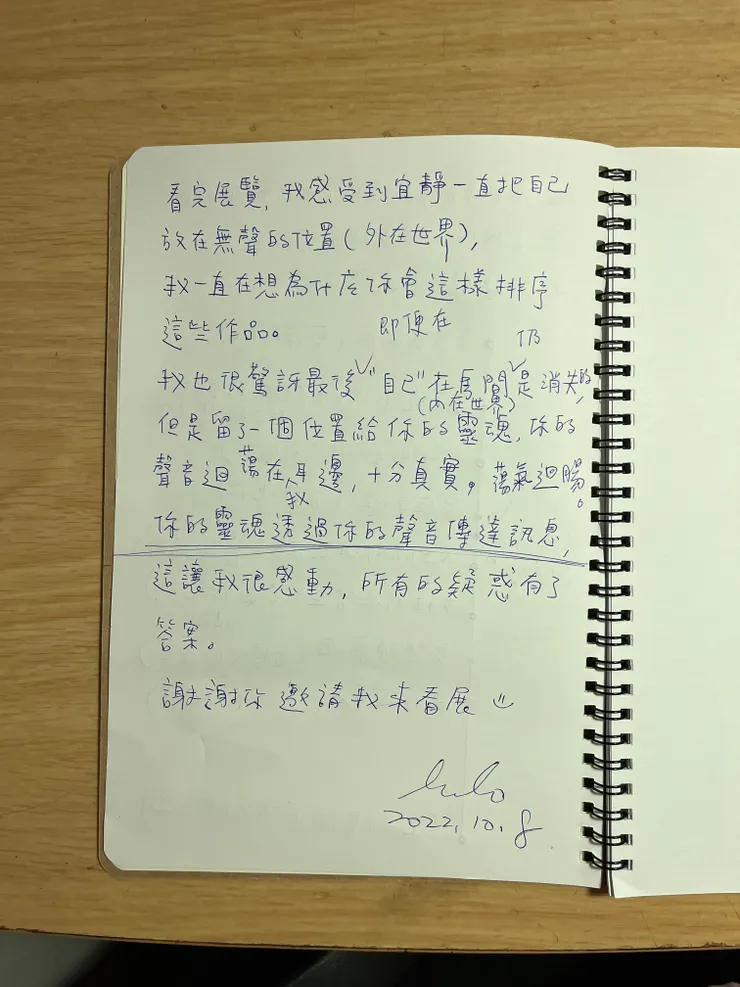 看完展覽，我感受到宜靜一直把自己
放在無聲的位置(外在世界)，
我一直在想為什麼你會這樣排序
這些作品。
即便在
仍
我也很驚訝最後"自己"在房間是消失的，
(內在世界)
但是留了一個位置給你的靈魂，你的
聲音迴蕩在耳邊，十分真實。蕩氣迴腸。
我
你的靈魂透過你的聲音傳達訊息，
這讓我很感動，所有的疑惑有了
答案。
謝謝你邀請我來看展
2022.10.8